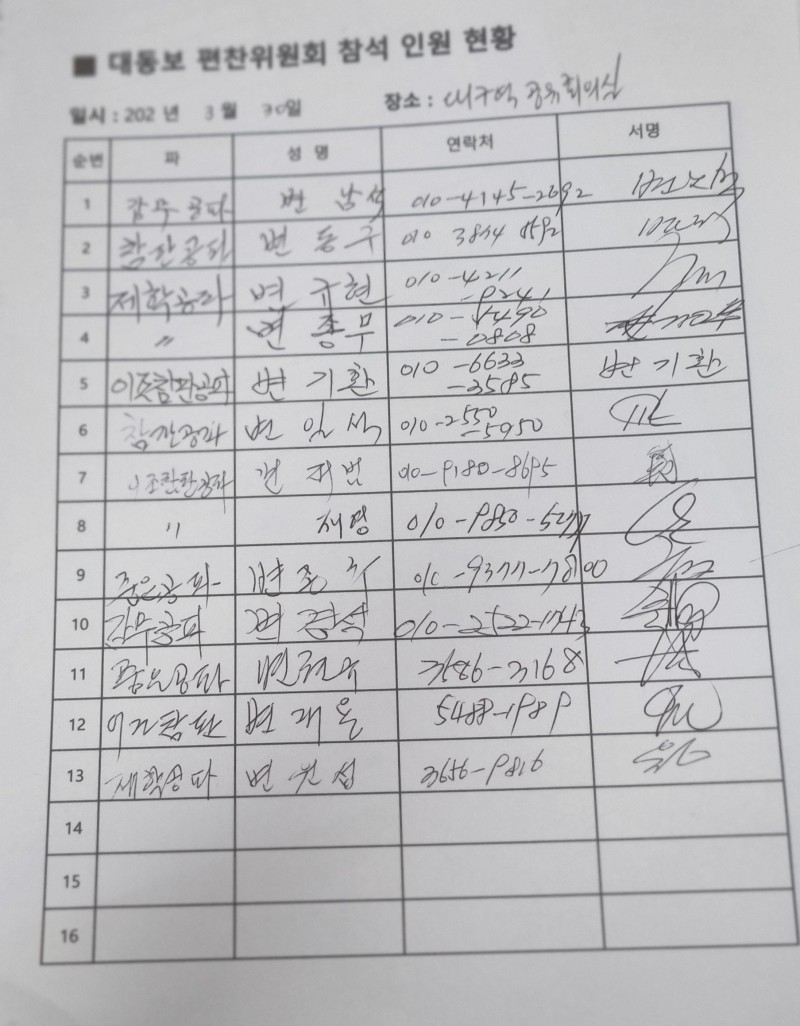 ■ 대동보 편찬위원회 참석 인원 현황
일시 : 202 년 3 월 30일 장소 : 대구역 공유회의실
순번 파 성 명 연락처 서명
1 감무공파 변 남석 010-4145-2692
2 참판공파 변 동구 010
3 제학공파 변 규현 010-4211-9241
4 〃 변 종무 010-5490-0808
5 이조참판공파 변 기환 010-6633-3585 변 기환
6 참판공파 변 일석 010-2550-5950
7 이조참판공파 변 재범 010-9180-8695
8 〃 재영 010-9850-
9 변 010-9377-7800
10 감무공파 변 경석 010-2522-1743
11 3686-3168
12 이조참판 변 재윤 5488-1989
13 제학공파 변 원섭 3656-9816
14
15
16